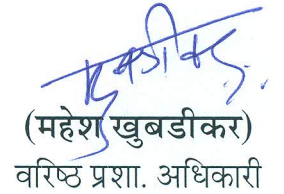 (महेश खुबडीकर)
वरिष्ठ प्रशा. अधिकारी